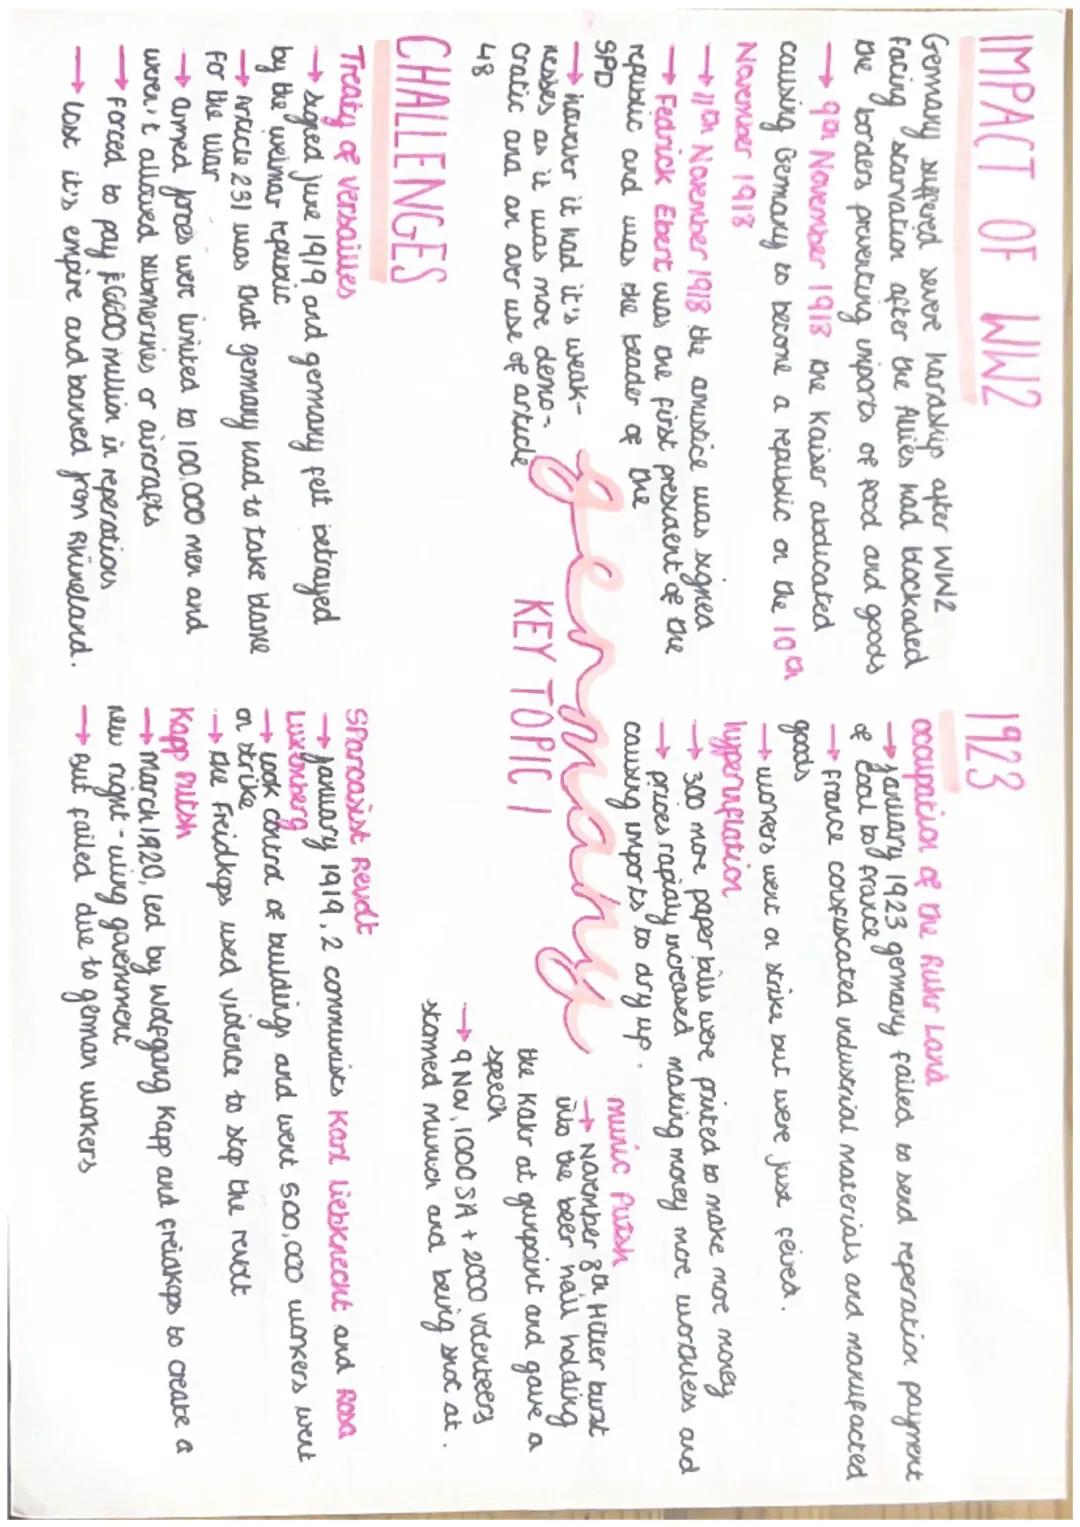 IMPACT OF WW2
Germany suffered severe hardship after WW2
facing starvation after the Allies had blockaded
the borders preventing imports of food and goods
→ 9th November 1918 the Kaiser abdicated
causing Germany to become a republic on the 10th
November 1918
→ 11th November 1918 the armistice was signed
→ Fedrick Ebert was the first president of the
republic and was the leader of the
SPD
→ however it had it's weak-
nesses as it was more demo-
cratic and an over use of article
48
germany
KEY TOPIC 1
CHALLENGES
Treaty of Versailles
→ signed june 1919 and germany felt betrayed
by the weimar republic
→ Article 231 was that germany had to take blame
for the war
→ armed forces were limited to 100,000 men and
weren't allowed submerines or aircrafts
→ Forced to pay £6600 million in reperations
→ Lost it's empire and banned from Rhineland.
1923
occupation of the Ruhr Land
→ January 1923 germany failed to send reperation payment
of Coal to france
→ France confiscated industrial materials and manufacted
goods
→ workers went on strike but were just feired.
hyperinflation
→ 300 more paper bills were printed to make more money
→ prices rapidly increased making money more worthless and
causing imports to dry up.
munic Putsh
→ November 8th Hitler burst
into the beer hall holding
the Kahr at gunpoint and gave a
speech
→ 9 Nov, 1000 SA + 2000 volenteers
stormed Munich and being shot at.
SParcasist Revolt
→ january 1919, 2 communists Karl Liebknecht and Rosa
Luxemberg
→ took control of buildings and went 500,000 workers went
on strike
→ the Freidkops used violence to stop the revolt
Kapp Putsh
→ March 1920, led by Wolfgang Kapp and freidkops to create a
new right-wing government
→ But failed due to german workers